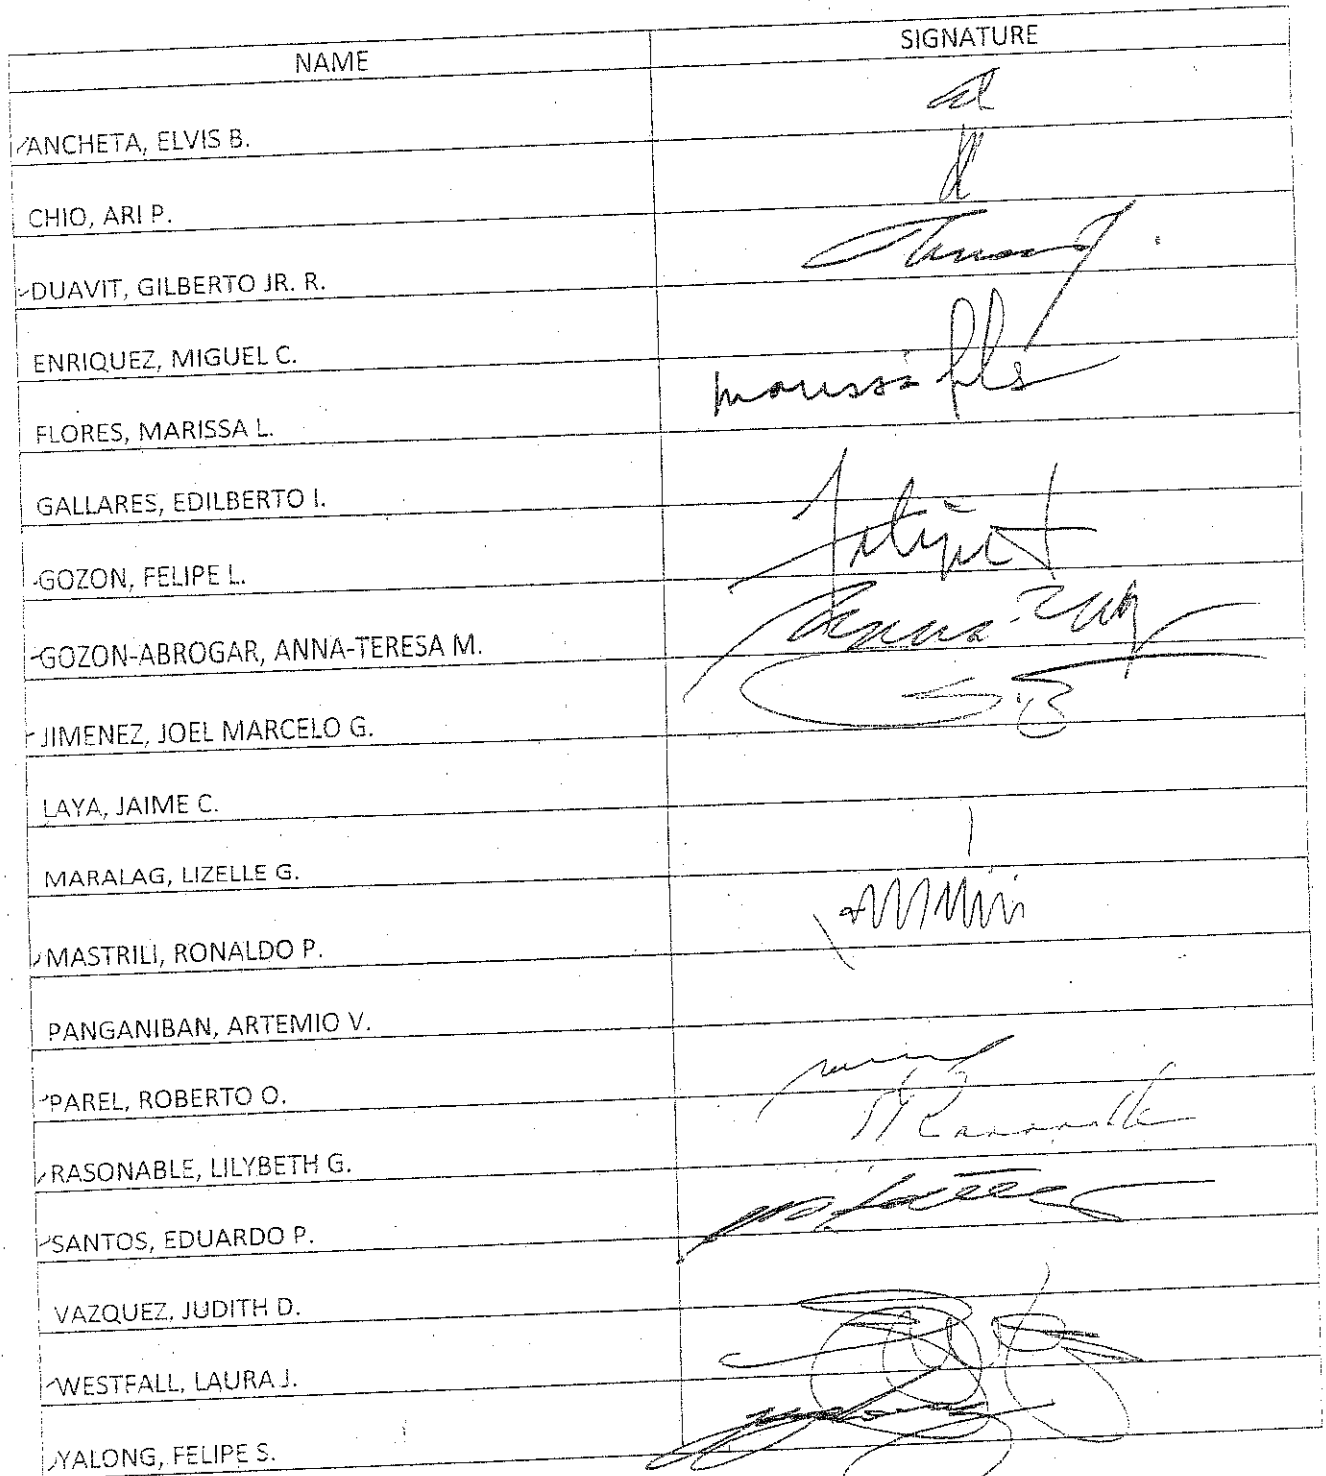 NAME SIGNATURE
ANCHETA, ELVIS B.
CHIO, ARI P.
DUAVIT, GILBERTO JR. R.
ENRIQUEZ, MIGUEL C.
FLORES, MARISSA L.
GALLARES, EDILBERTO I.
GOZON, FELIPE L.
GOZON-ABROGAR, ANNA-TERESA M.
JIMENEZ, JOEL MARCELO G.
LAYA, JAIME C.
MARALAG, LIZELLE G.
MASTRILI, RONALDO P.
PANGANIBAN, ARTEMIO V.
PAREL, ROBERTO O.
RASONABLE, LILYBETH G.
SANTOS, EDUARDO P.
VAZQUEZ, JUDITH D.
WESTFALL, LAURA J.
YALONG, FELIPE S.